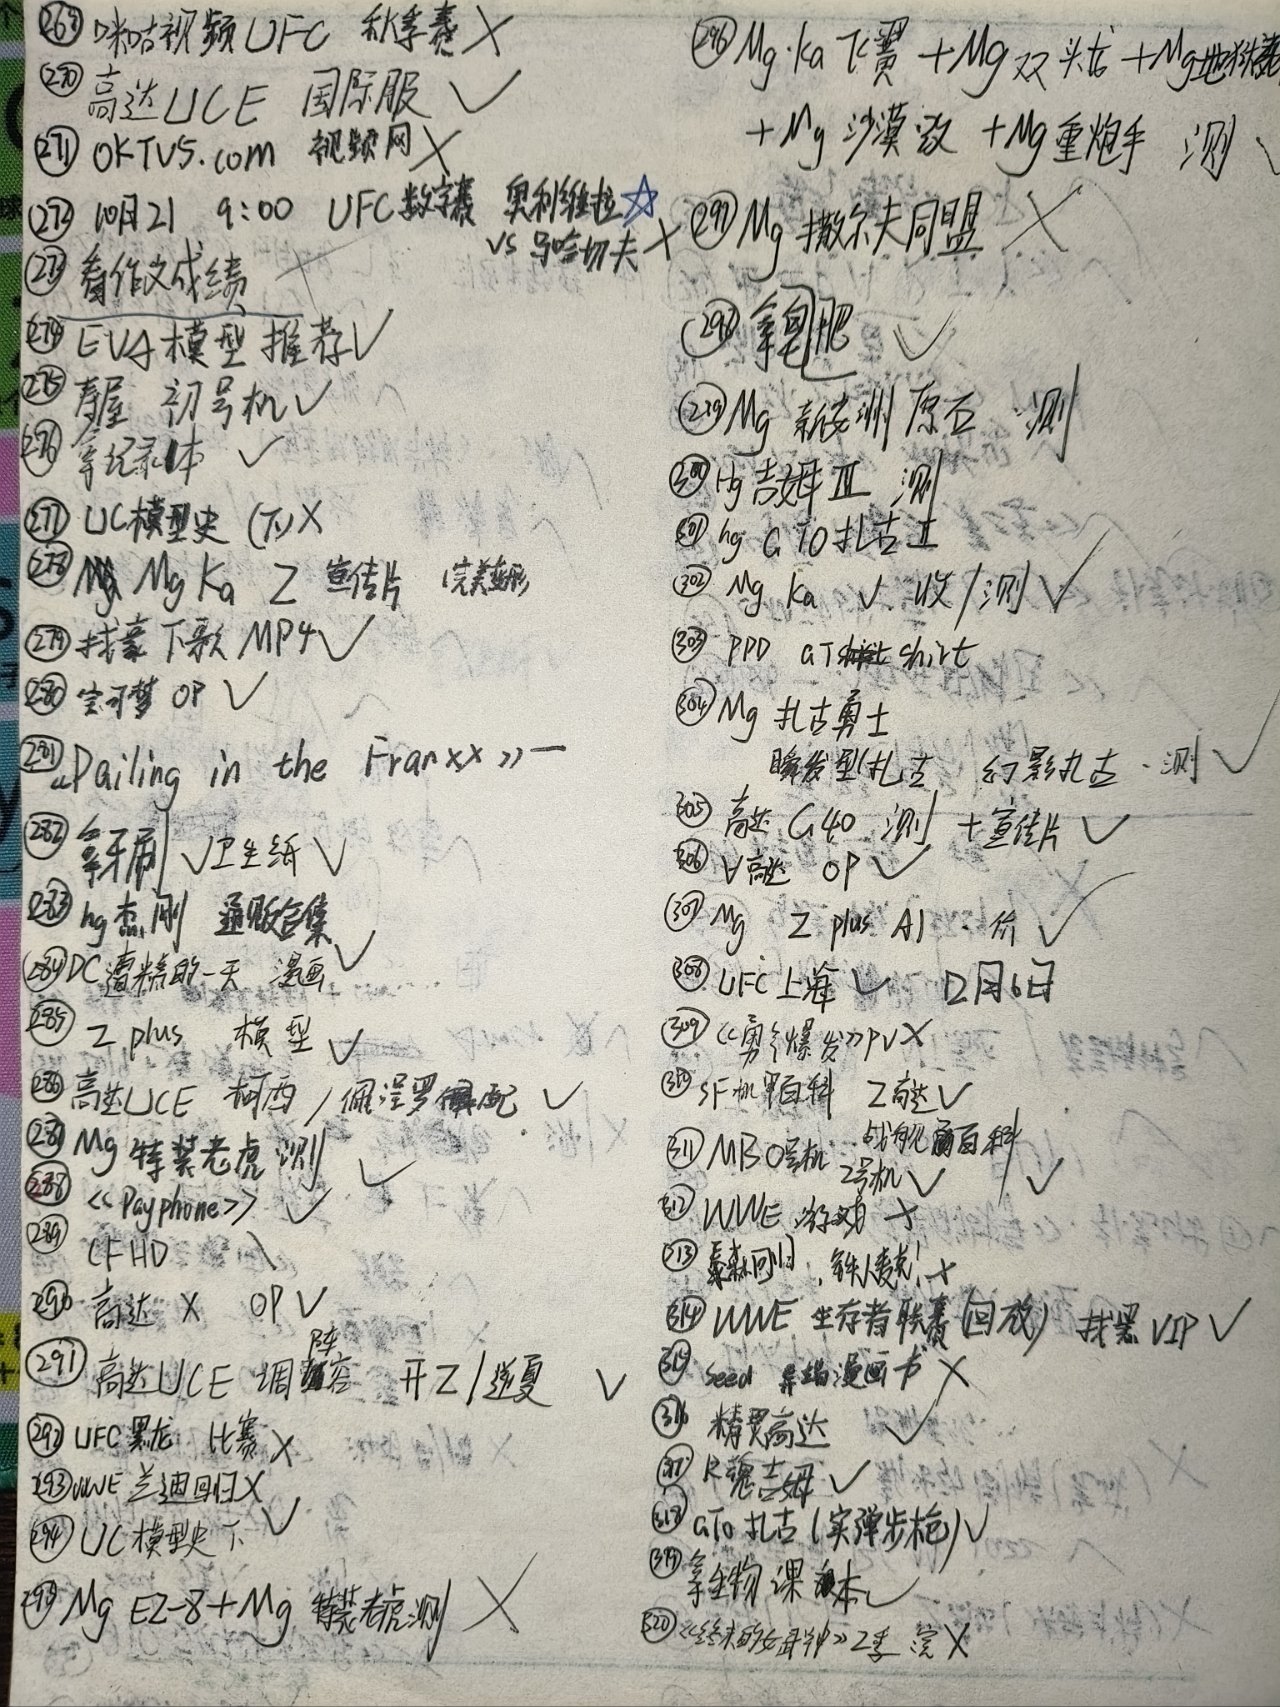 269 咪咕视频UFC 秋季赛 X
270 高达UCE 国际服 ✓
271 OKTV5.com 视频网 X
272 10月21 9:00 UFC数字赛 奥利维拉☆
VS 马哈切夫 X
273 看作文成绩 X
274 EVA模型推荐 ✓
275 寿屋 初号机 ✓
276 拿纪录本 ✓
277 UC模型史 (下) X
278 Mg Ka Z 宣传片 (完美变形
279 找豪下歌MP4 ✓
280 宝可梦 OP ✓
281 《Dailing in the Franxx》—
282 拿牙刷 ✓ 卫生纸 ✓
283 hg杰刚 通贩合集 ✓
284 DC遭精的一天 漫画
285 Z plus 模型 ✓
286 高达UCE 柯西/佩涅罗佩配 ✓
287 Mg 特装老虎 测 ✓
288 《Payphone》 ✓
289 CFHD \
290 高达 X OP ✓
291 高达UCE 调阵容 开Z/逆夏 ✓
292 UFC黑龙 比赛 X
293 WWE 兰迪回归 X
294 UC模型史 下 ✓
295 Mg EZ-8+Mg 特装老虎 测 X
296 Mg·Ka 飞翼 +Mg双头龙 +Mg地狱
+Mg 沙漠 +Mg重炮手 测 ✓
297 Mg 撒尔夫同盟 X
298 拿肥 ✓
299 Mg 新安洲 原石 测
300 Hg 吉姆 III 测
301 hg GTO扎古 II
302 Mg Ka V 收/测 ✓
303 PPD GT shirt
304 Mg 扎古勇士
瞬发型扎古 幻影扎古·测 ✓
305 高达 G40 测 +宣传片 ✓
306 ∀高达 OP ✓
307 Mg Z plus A1·价 ✓
308 UFC上海 ✓ 12月6日
309 《勇气爆发》PV X
310 SF机甲百科 Z高达 ✓
311 MB0号机 战锤百科
2号机 ✓ ✓
312 WWE 游戏 X
313 泰森 X
314 WWE 生存者联赛(回放) 找黑VIP ✓
315 Seed 异端漫画书 X
316 精灵高达 ✓
317 R魂吉姆 ✓
318 GTO 扎古(实弹步枪) ✓
319 拿生物课本 ✓
320 《终末的女武神》2季 完 X